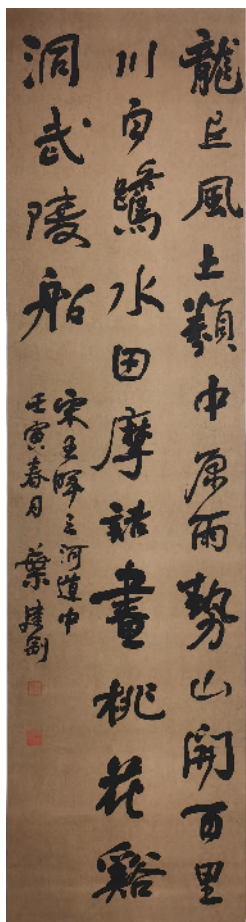 龍丘風土類中原雨勢山開百里
川白鷺水田摩詰畫桃花谿
洞武陵船
宋王暉三河道中
壬寅春月 葉